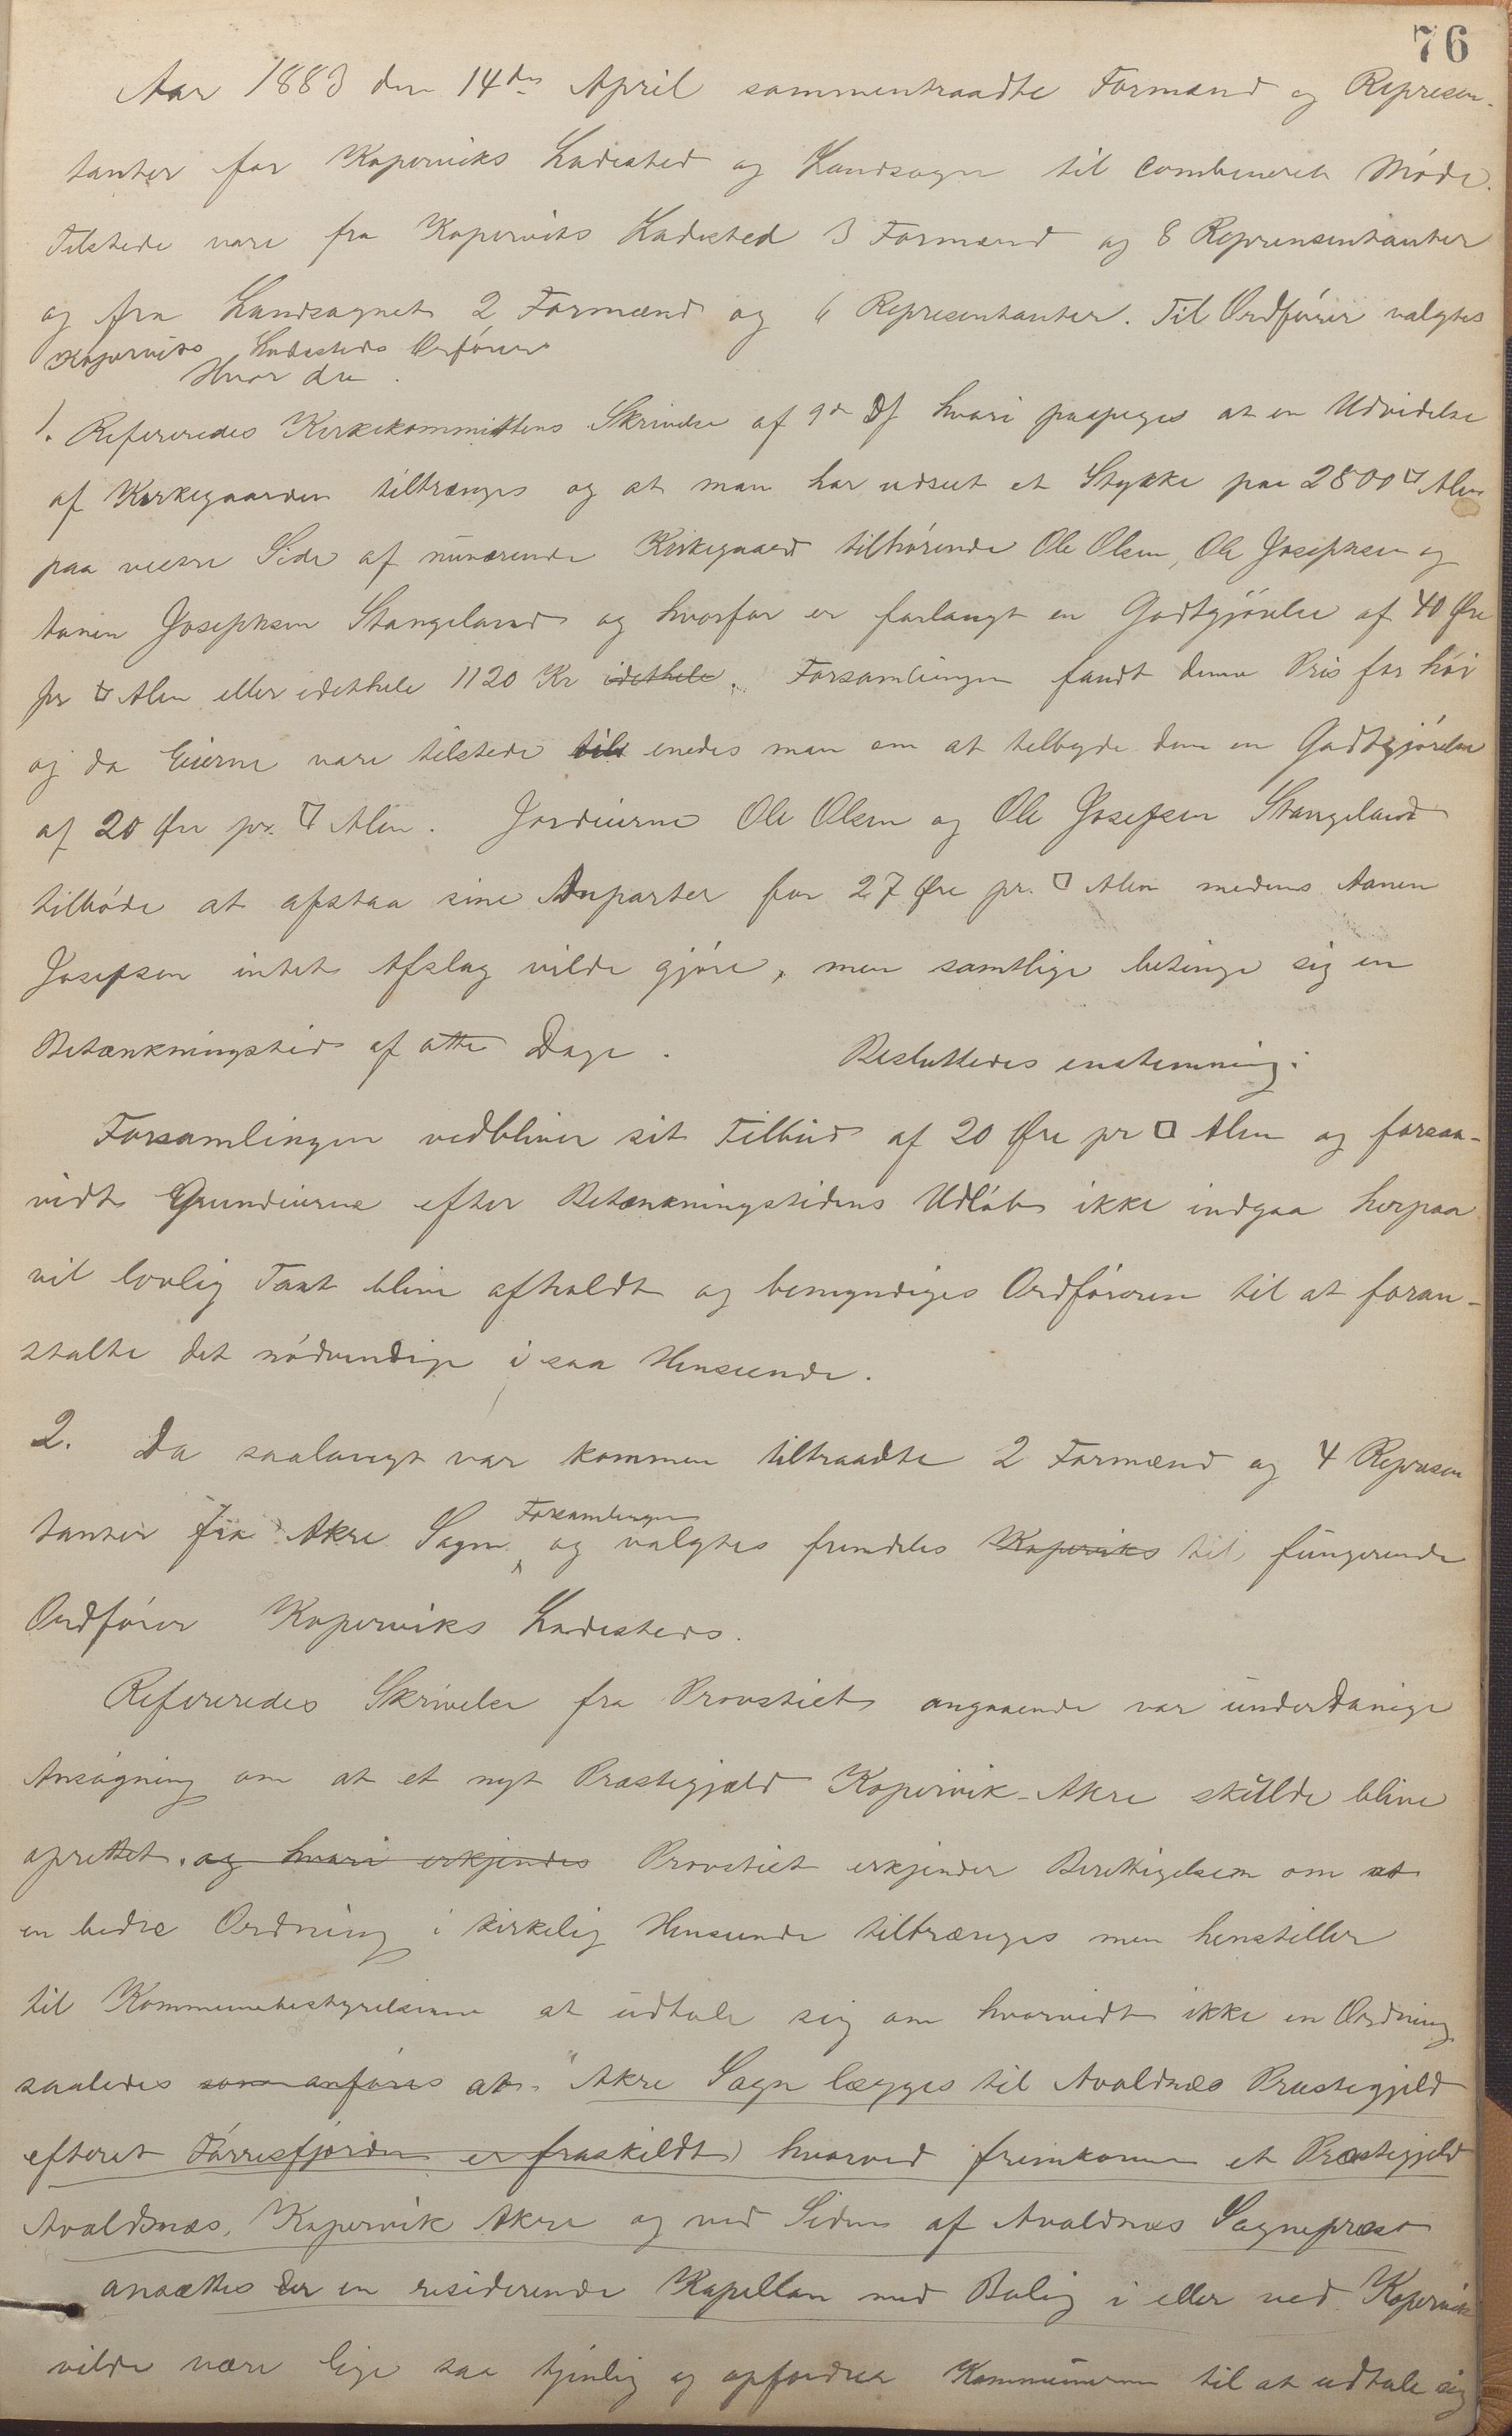 76
Aar 1883 den 14de April sammentraadte Formænd og Represen-
tanter for Koperviks Ladested og Landsogn til combineret Møde.
Tilstede vare fra Koperviks Ladested 3 Formænd og 8 Reprensentanter
og fra Landsognet 2 Formænd og 6 Representanter. Til Ordfører valgtes
Koperviks Ladesteds Orfører
Hvor da.
1. Refereredes Kirkekommittens Skrivelse af 9de Ds hvori paapeges at en Udvidelse
af Kirkegaarden tiltrænges og at man har udseet et Stykke paa 2800 □ Alen
paa vestre Side af nuværende Kirkegaard tilhørende Ole Olsen, Ole Josephsen og
Aanen Josephsen Stangeland og hvorfor er forlangt en Godtgjørelse af 40 Øre
pr □ Alen eller idethele 1120 Kr idethele. Forsamlingen fandt denne Pris for høi
og da Eierne vare tilstede till enedes man om at tilbyde dem en Godtgjørelse
af 20 Øre pr. □ Alen. Jordeierne Ole Olsen og Ole Josefsen Stangeland
tilbøde at afstaa sine Anparter for 27 Øre pr. □ Alen medens Aanen
Josefsen intet Afslag vilde gjøre, men samtlige betinge sig en
Betænkningstid af otte Dage. Besluttedes enstemmig:
Forsamlingen vedbliver sit Tilbud af 20 Øre pr □ Alen og forsaa-
vidt Grundeierne efter Betænkningstidens Udløb ikke indgaa herpaa
vil lovlig Taxt blive afholdt og bemyndiges Ordføreren til at foran-
stalte det nødvendige i saa Henseende.
2. Da saalangt var kommen tiltraadte 2 Formænd og 4 Represen
tanter fra Akre Sogn Forsamlingen og valgtes fremdeles Koperviks til fungerende
Ordfører Koperviks Ladesteds.
Refereredes Skrivelse fra Provstiet angaaende vor underdanige
Ansøgning om at et nyt Præstegjæld Kopervik-Akre skulde blive
oprettet. og hvori erkjendes Provstiet erkjender Berettigelsen om at
en bedre Ordning i kirkelig Henseende tiltrænges men henstiller
til Kommunebestyrelserne at udtale sig om hvorvidt ikke en Ordning
saaledes som anføres at "Akre Sogn lægges til Avaldsnæs Præstegjeld
efteret Førresfjorden er fraskildt) hvorved fremkommer et Præstegjeld
Avaldsnæs, Kopervik Akre og ved Siden af Avaldsnæs Sognepræst
ansættes der en residerende Kapellan med Bolig i eller ved Kopervik"
vilde være lige saa tjenlig og opfordrer Kommunerne til at udtale sig